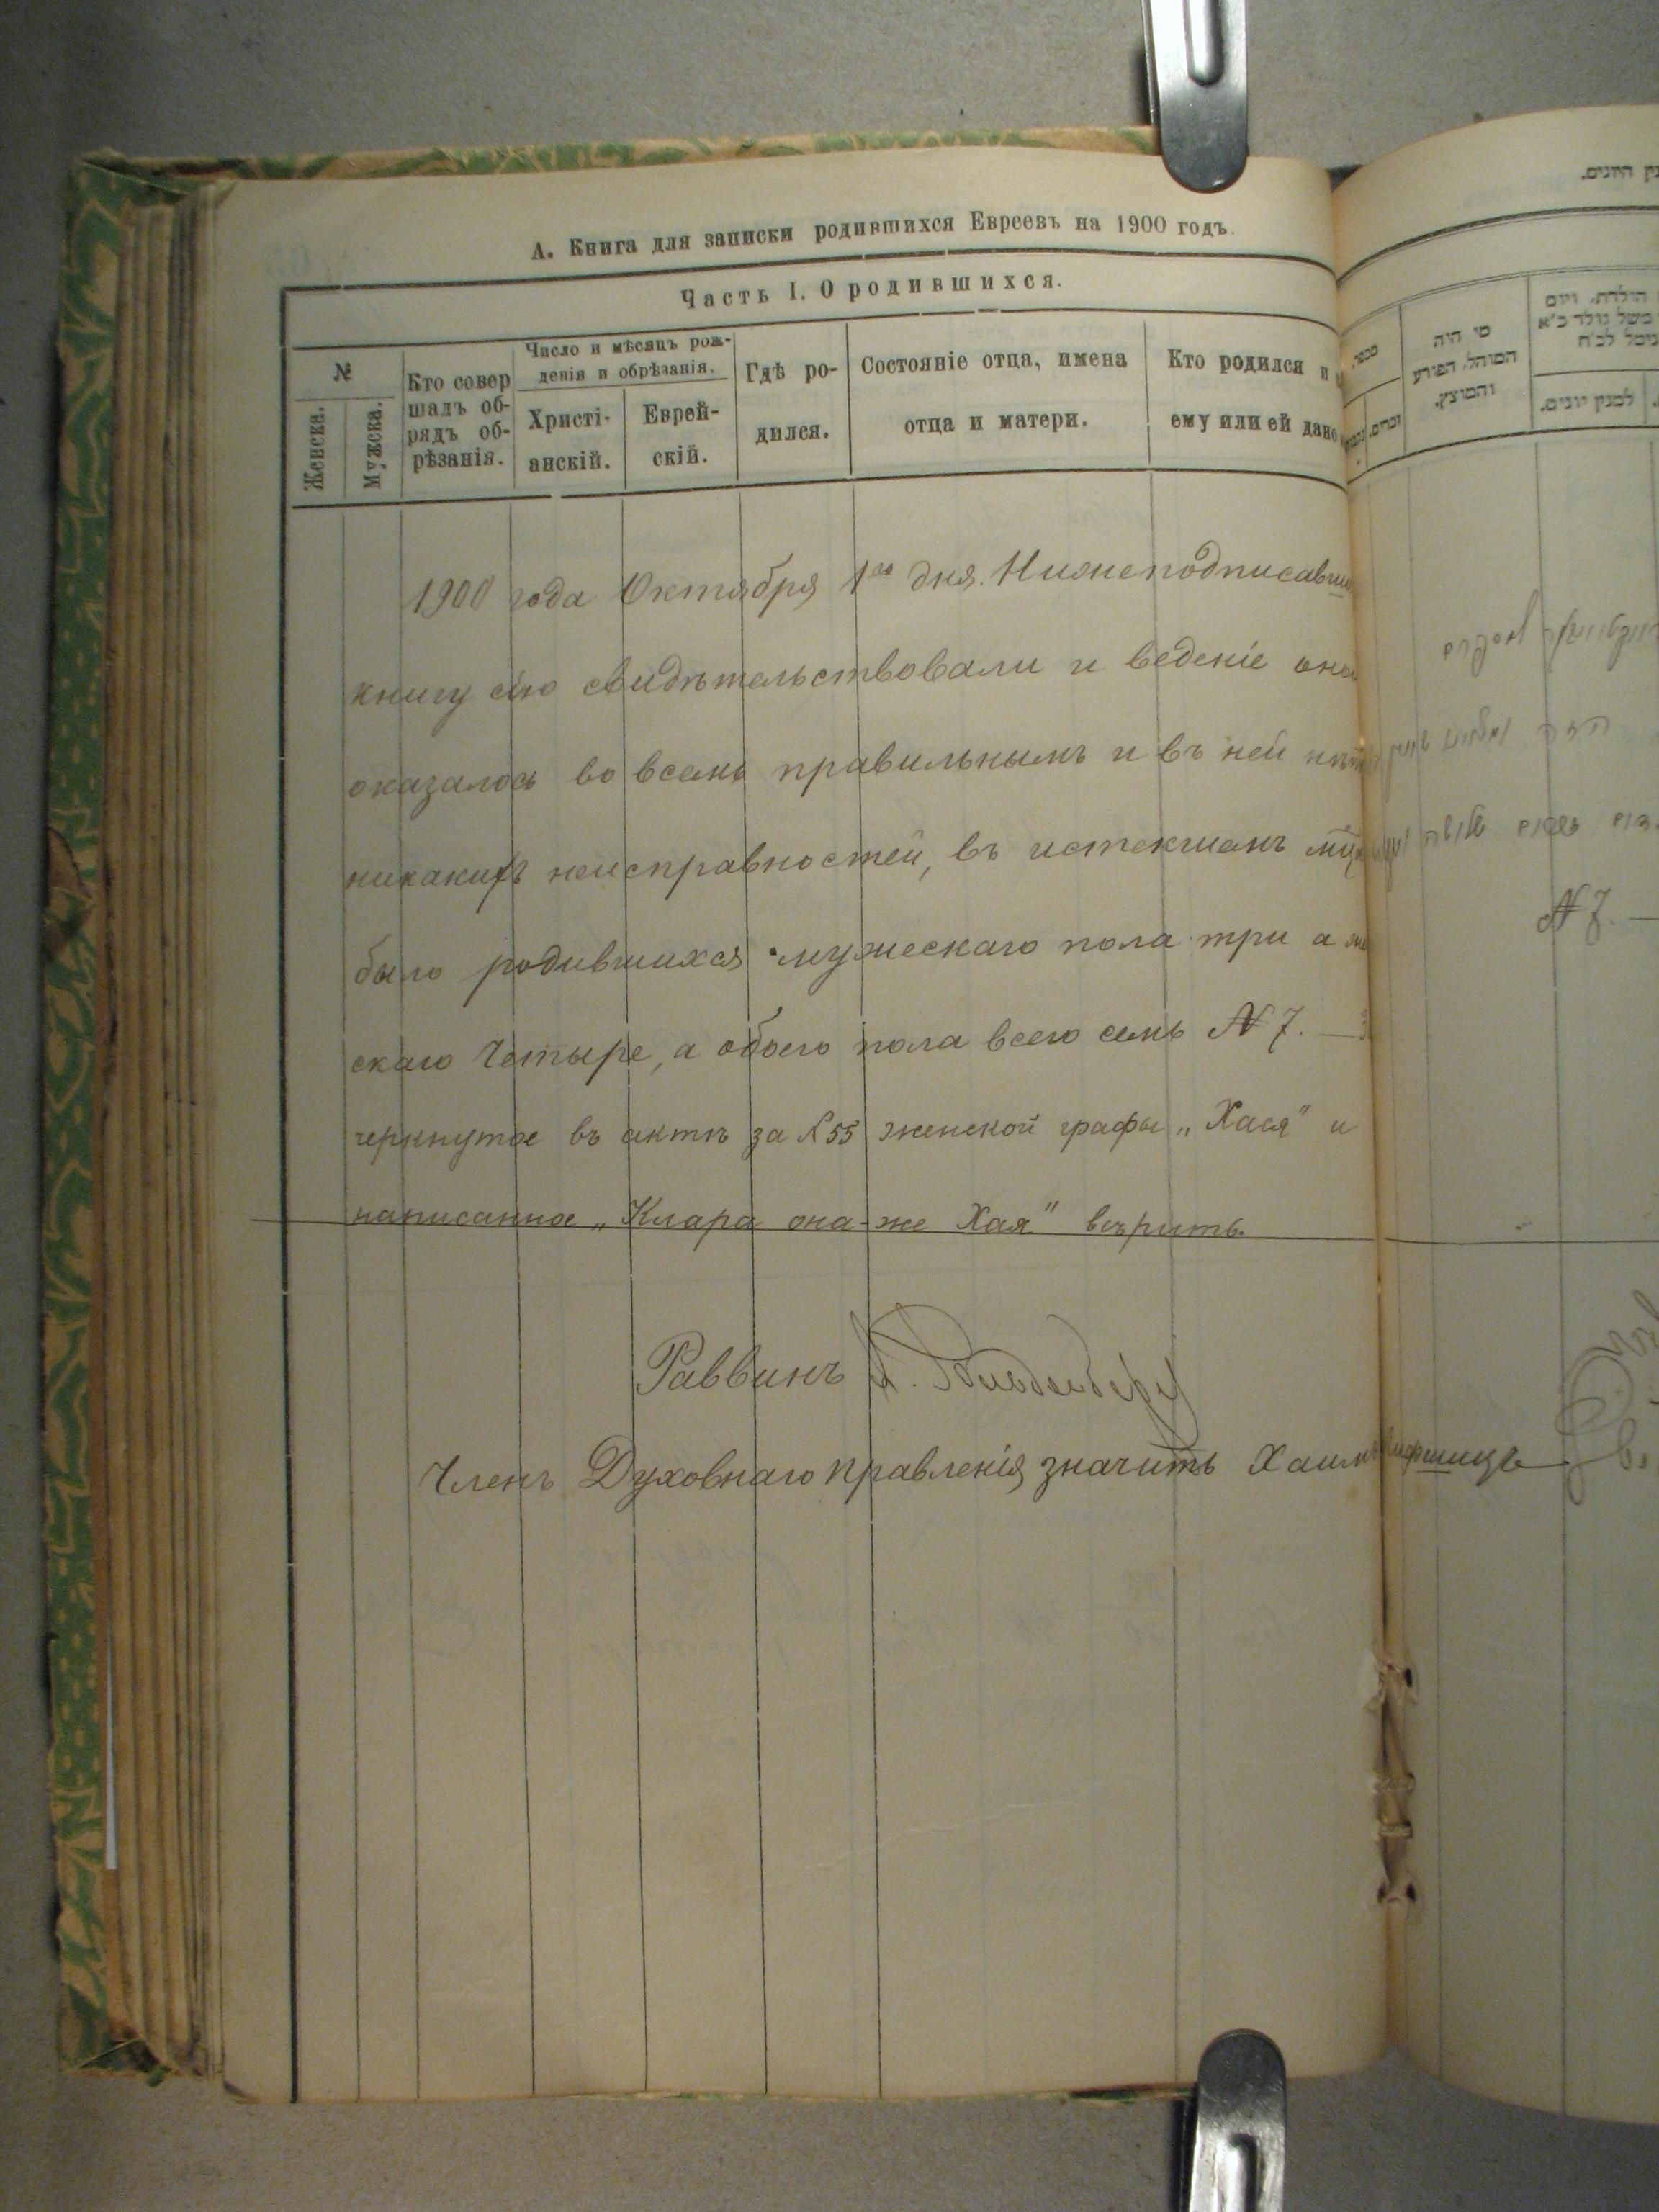 А. Книга для записки родившихся Евреевъ на 1900 годъ.
Часть I. О родившихся.
№
Женска.
Мужска.
Кто совер
шалъ об-
рядъ об-
рѣзанія.
Число и мѣсяцъ рож-
денія и обрѣзанія.
Христі-
анскій.
Еврей-
скій.
Гдѣ ро-
дился.
Состояніе отца, имена
отца и матери.
Кто родился и
ему или ей дано
1900 года Октября 1го дня. Нижеподписавши
книгу сію свидѣтельствовали и веденіе оно
оказалось во всемъ правильнымъ и въ ней нѣтъ
никакихъ неисправностей, въ истекшемъ
было родившихся мужескаго пола три а же
скаго четыре, а обоего пола всего семь № 7. — З
черкнутое въ актѣ за №55 женской графы „Хася" и
написанное „Клара она-же Хая" вѣрить.
Раввинъ
Членъ Духовнаго правленія значитъ Хаимъ Лифшицъ
מי היה
המוהל, הפורע
והמוצץ.
למנין יונים.
№ 7. —